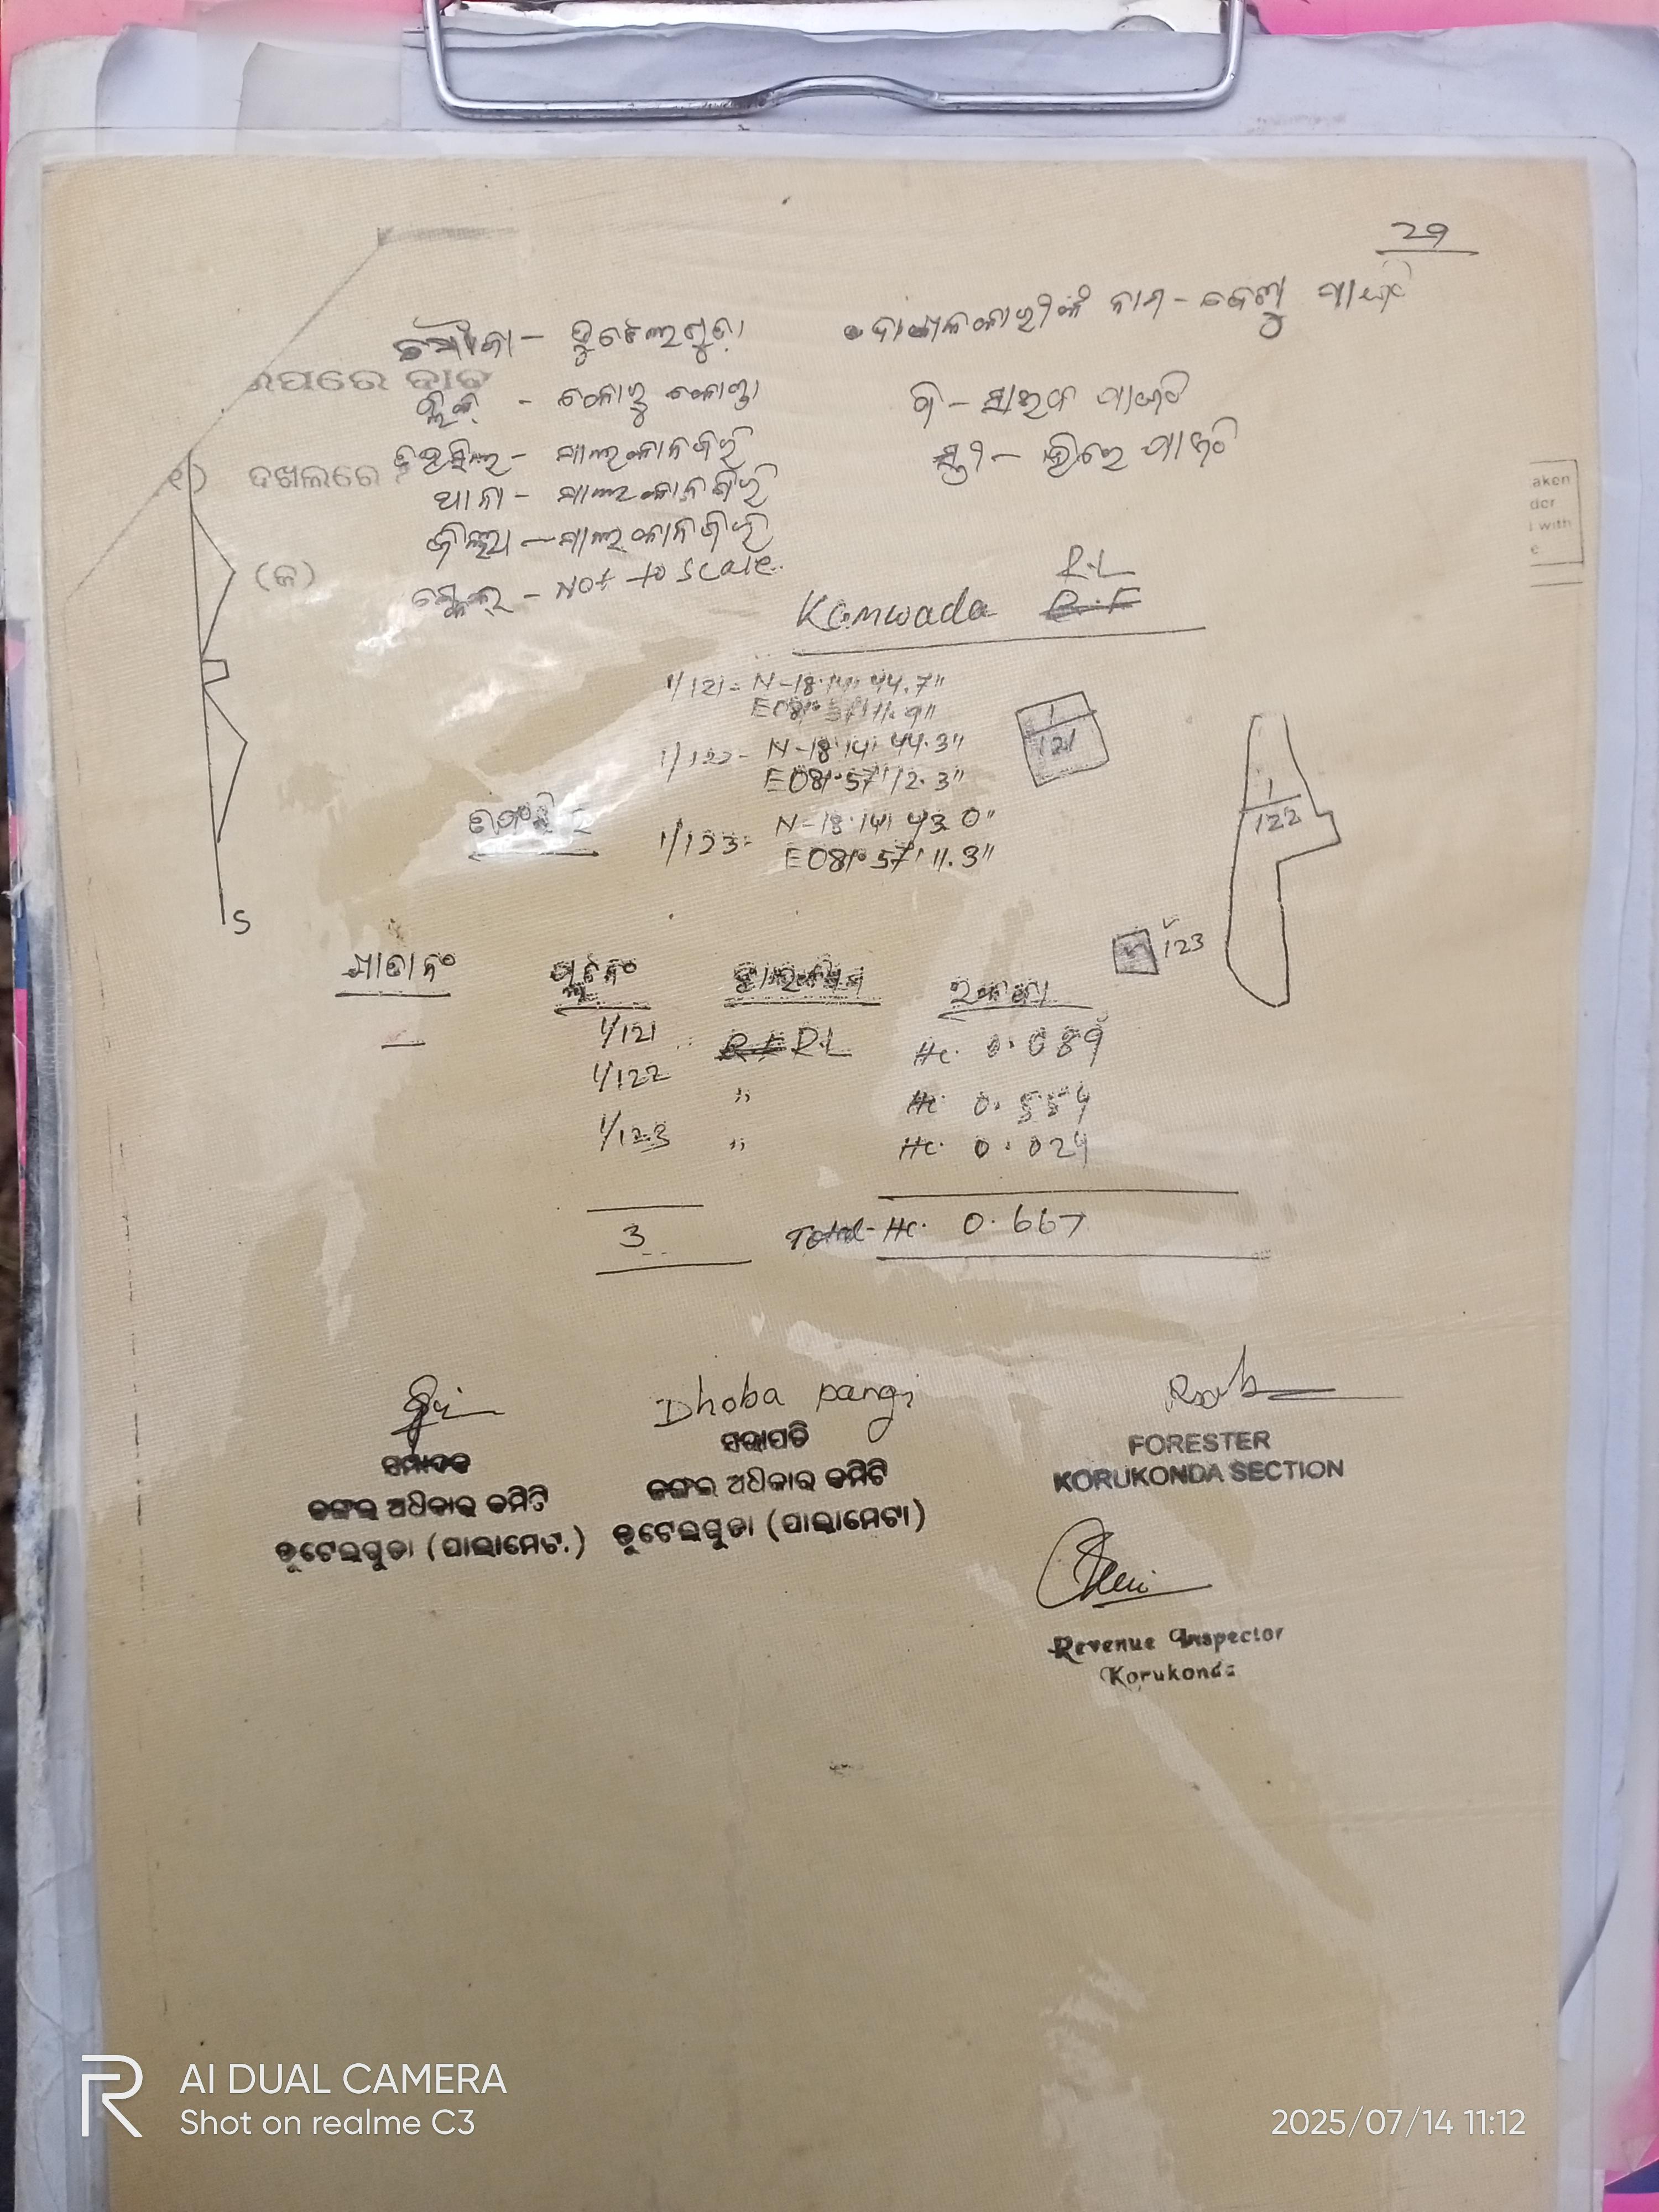 29
ମୌଜା - ଡୁଟେଲଗୁଡା
ଦାଖଲକାରୀଙ୍କ ନାମ -
ବ୍ଲକ - କୋରୁକୋଣ୍ଡା
ତହସିଲ - ମାଲକାନଗିରି
ସ୍ତ୍ରୀ -
ଥାନା - ମାଲକାନଗିରି
ଜିଲ୍ଲା - ମାଲକାନଗିରି
ସ୍କେଲ - Not to scale
ଦଖଲରେ
(କ)
aken
der
l with
e
R.L
Kamwada R.F
1/121 = N-18°14' 44.7"
E081°57'11.9"
1/122 - N-18°14' 44.3"
E081°57'12.3"
1/123 = N-18°14' 43.0"
E081°57'11.3"
1/121
1/122
1/123
S
ଖାତା ନଂ ପ୍ଲଟ ନଂ ରକବା
— 1/121 R.F R.L Hc. 0.089
1/122 " Hc. 0.554
1/123 " Hc. 0.024
3 Total- Hc. 0.667
Dhoba pangi
ସମ୍ପାଦକ
ଜଙ୍ଗଲ ଅଧିକାର କମିଟି
ଡୁଟେଲଗୁଡା (ପାଲାମେଟା)
ସଭାପତି
ଜଙ୍ଗଲ ଅଧିକାର କମିଟି
ଡୁଟେଲଗୁଡା (ପାଲାମେଟା)
FORESTER
KORUKONDA SECTION
Revenue Inspector
Korukonda
AI DUAL CAMERA
Shot on realme C3
2025/07/14 11:12